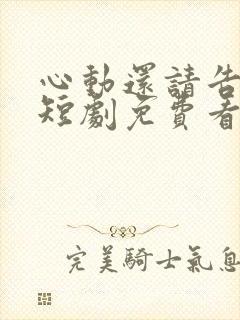 心動還請告
短劇免費看
完美騎士氣息